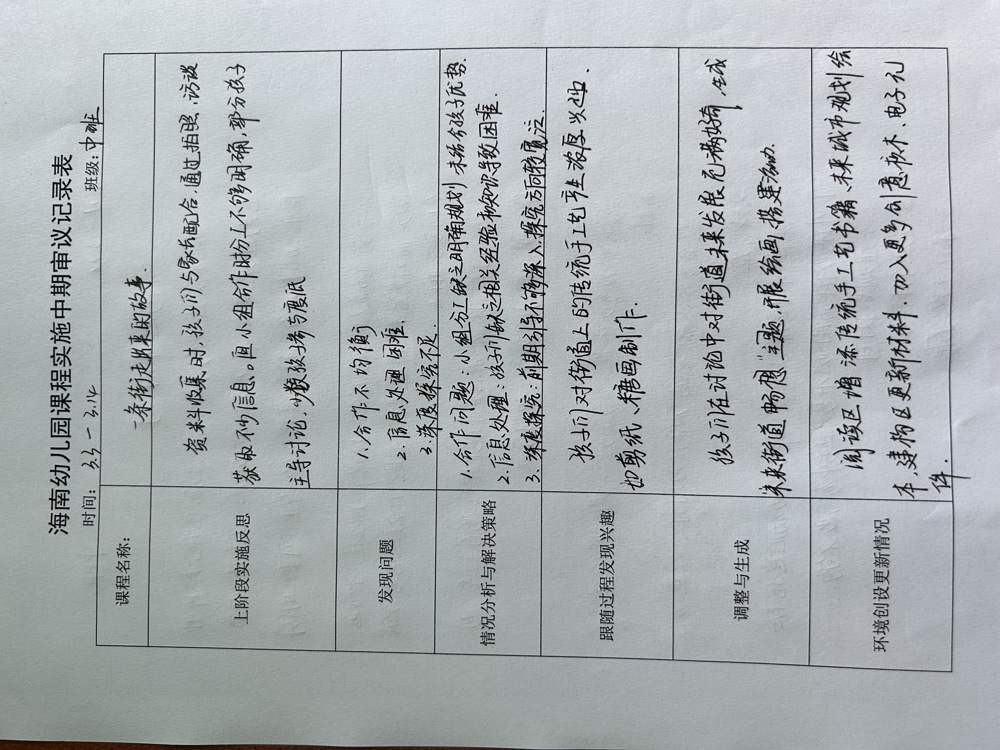 海南幼儿园课程实施中期审议记录表
时间：3.3-3.14 班级：中班
课程名称： 一条街走出来的故事.
上阶段实施反思
资料收集时，孩子们与家长配合.通过拍照、访谈
获取不少信息。但小组合作时分工不够明确，部分孩子
主导讨论.少数孩子参与度低
发现问题
1.合作不均衡
2.信息处理困难.
3.深度探究不足
情况分析与解决策略
1.合作问题：小组分工缺乏明确规划 未结合孩子优势.
2.信息处理：孩子们缺乏相关经验和知识导致困难.
3.深度探究 前期引导不够深入.探究方向较宽泛.
跟随过程发现兴趣
孩子们对街道上的传统手工艺产生浓厚兴趣.
如剪纸、糖画制作.
调整与生成
孩子们在讨论中对街道未来发展充满好奇，生成
“未来街道畅想”主题，开展绘画、搭建活动.
环境创设更新情况
阅读区增添传统手工艺书籍、未来城市规划绘
本、建构区更新材料.加入更多创意积木、电子元
件.